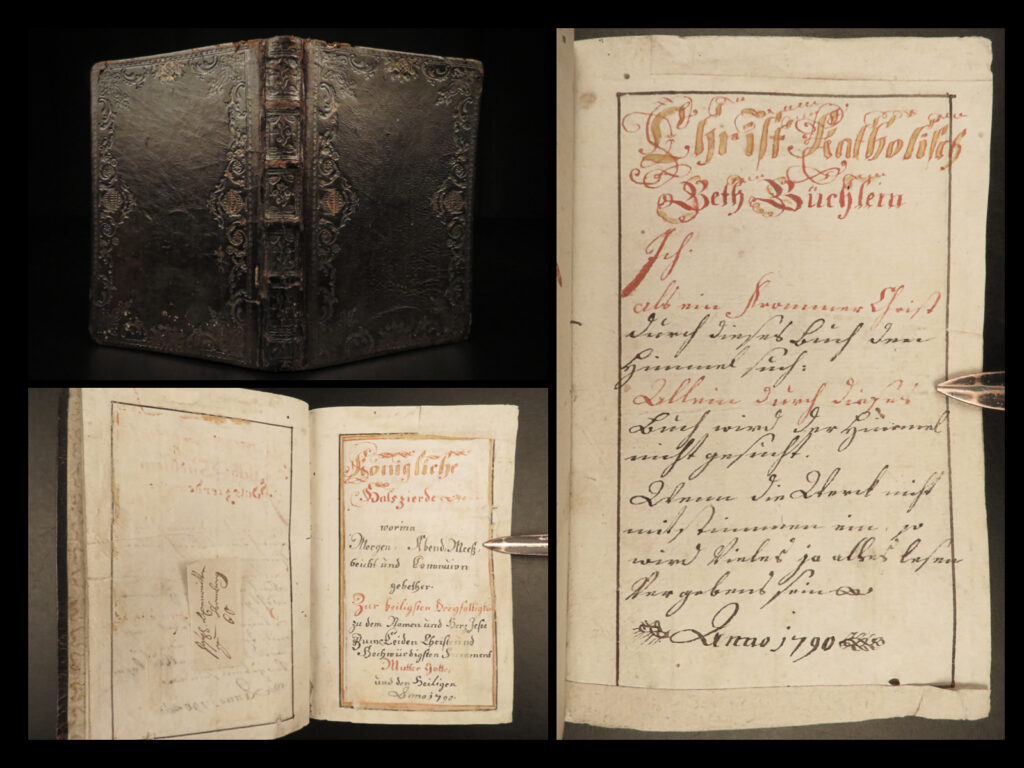 Königliche
Halszierde
worinn
Morgen, Abend, Meeß,
beicht und Communion
gebether.
Zur heiligsten Dreyfaltigke
zu dem Namen und Herz Jesu
Zum Leiden Christi und
Hochwürdigsten Sacrament
Mutter Gotte,
und den Heiligen
Anno 1790
Christ Katholisch
Beth Büchlein
Ich
als ein Frommer Christ
durch dieses Buch den
Himmel such:
Allein durch dieses
Buch wird der Himmel
nicht gesucht.
Wenn die Werck nicht
mit stimmen ein, so
wird Vieles ja alles lesen
Vergebens sein
Anno 1790